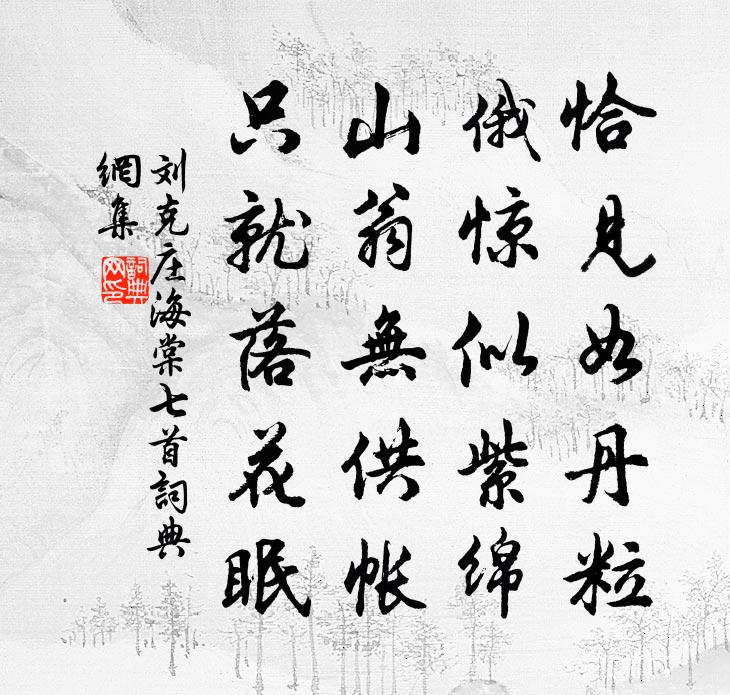 恰见如丹粒
俄惊似紫绵
山翁無供帐
只就落花眠
刘克庄海棠七首詞典
網集
詞典網印